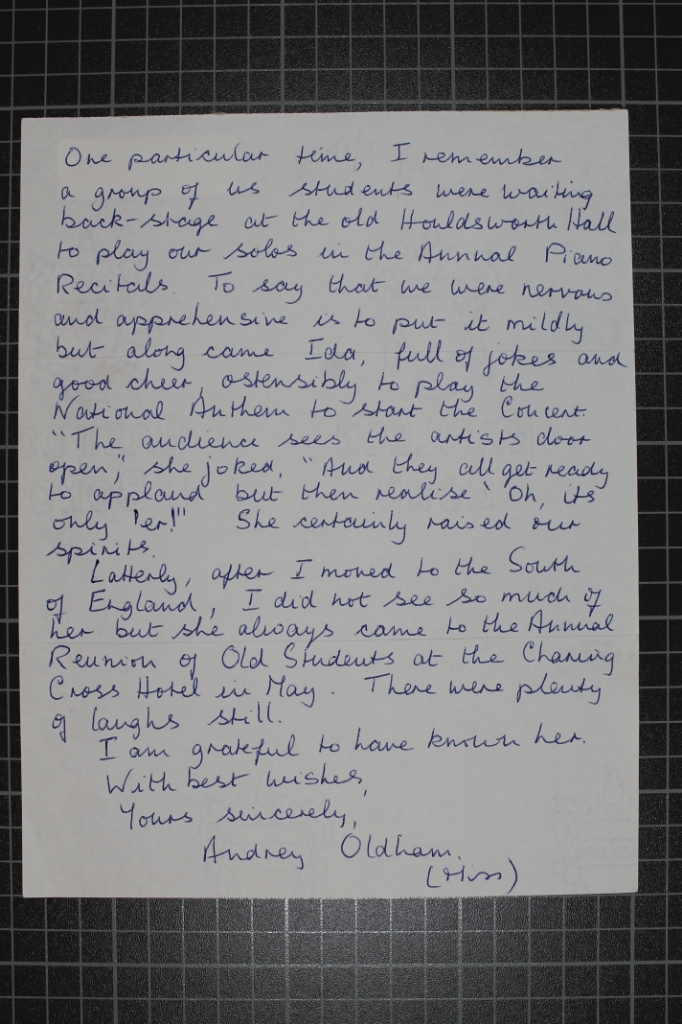 One particular time, I remember
a group of us students were waiting
back-stage at the old Houldsworth Hall
to play our solos in the Annual Piano
Recitals. To say that we were nervous
and apprehensive is to put it mildly
but along came Ida, full of jokes and
good cheer, ostensibly to play the
National Anthem to start the Concert.
"The audience sees the artists door
open," she joked, "And they all get ready
to applaud but then realise 'Oh, its
only 'er!" She certainly raised our
spirits.
Latterly, after I moved to the South
of England, I did not see so much of
her but she always came to the Annual
Reunion of Old Students at the Charing
Cross Hotel in May. There were plenty
of laughs still.
I am grateful to have known her.
With best wishes,
Yours sincerely,
Audrey Oldham.
(Miss)